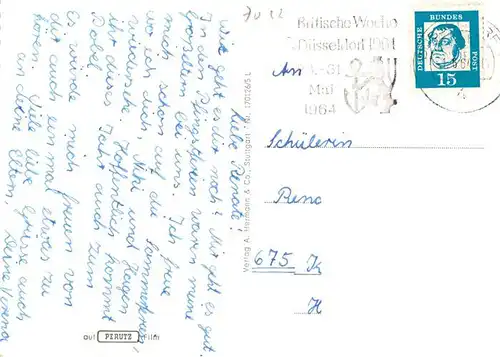 Liebe Renate!
Wie geht es dir noch? Mir geht es gut.
In den Pfingstferien waren meine
Großeltern bei uns. Ich freue
mich schon auf die Sommerferien,
wo ich dich, Nini und Hagen
wiedersehe. Hoffentlich kommt
ihr dieses Jahr auch zum
Dobel.
Es würde mich freuen von
dir auch einmal etwas zu
hören. Viele liebe Grüsse auch
an deine Eltern,
Deine Verena
Verlag A. Herrmann & Co., Stuttgart
Nr. 170126/5 L
auf PERUTZ Film
Britische Woche
Düsseldorf 1964
Mai
1964
DEUTSCHE BUNDESPOST
15
An
Schülerin
Rena
675 K
H